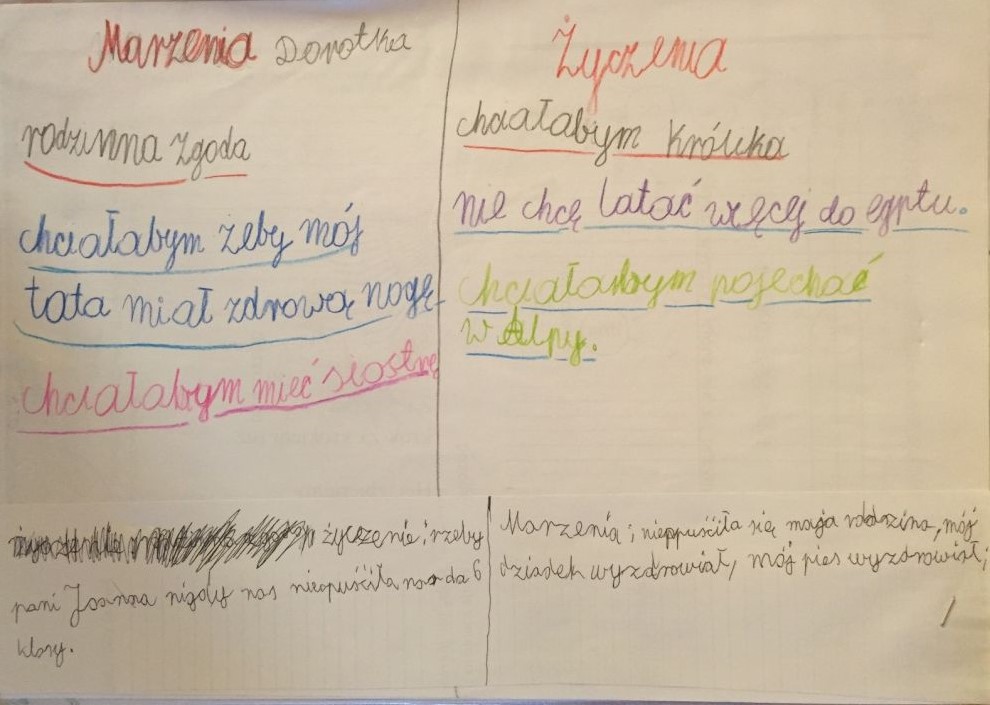 Marzenia Dorotka
rodzinna zgoda
chciałabym żeby mój
tata miał zdrową nogę
chciałabym mieć siostrę
Życzenia
chciałabym Królika
nie chcę latać więcej do egptu.
chciałabym pojechać
w Alpy.
życzenie; rzeby
pani Joanna nigdy nas nieopuściła do 6
klasy.
Marzenia; nieppuściła się moja rodzina, mój
dziadek wyzdrowiał, mój pies wyzdrowiał;